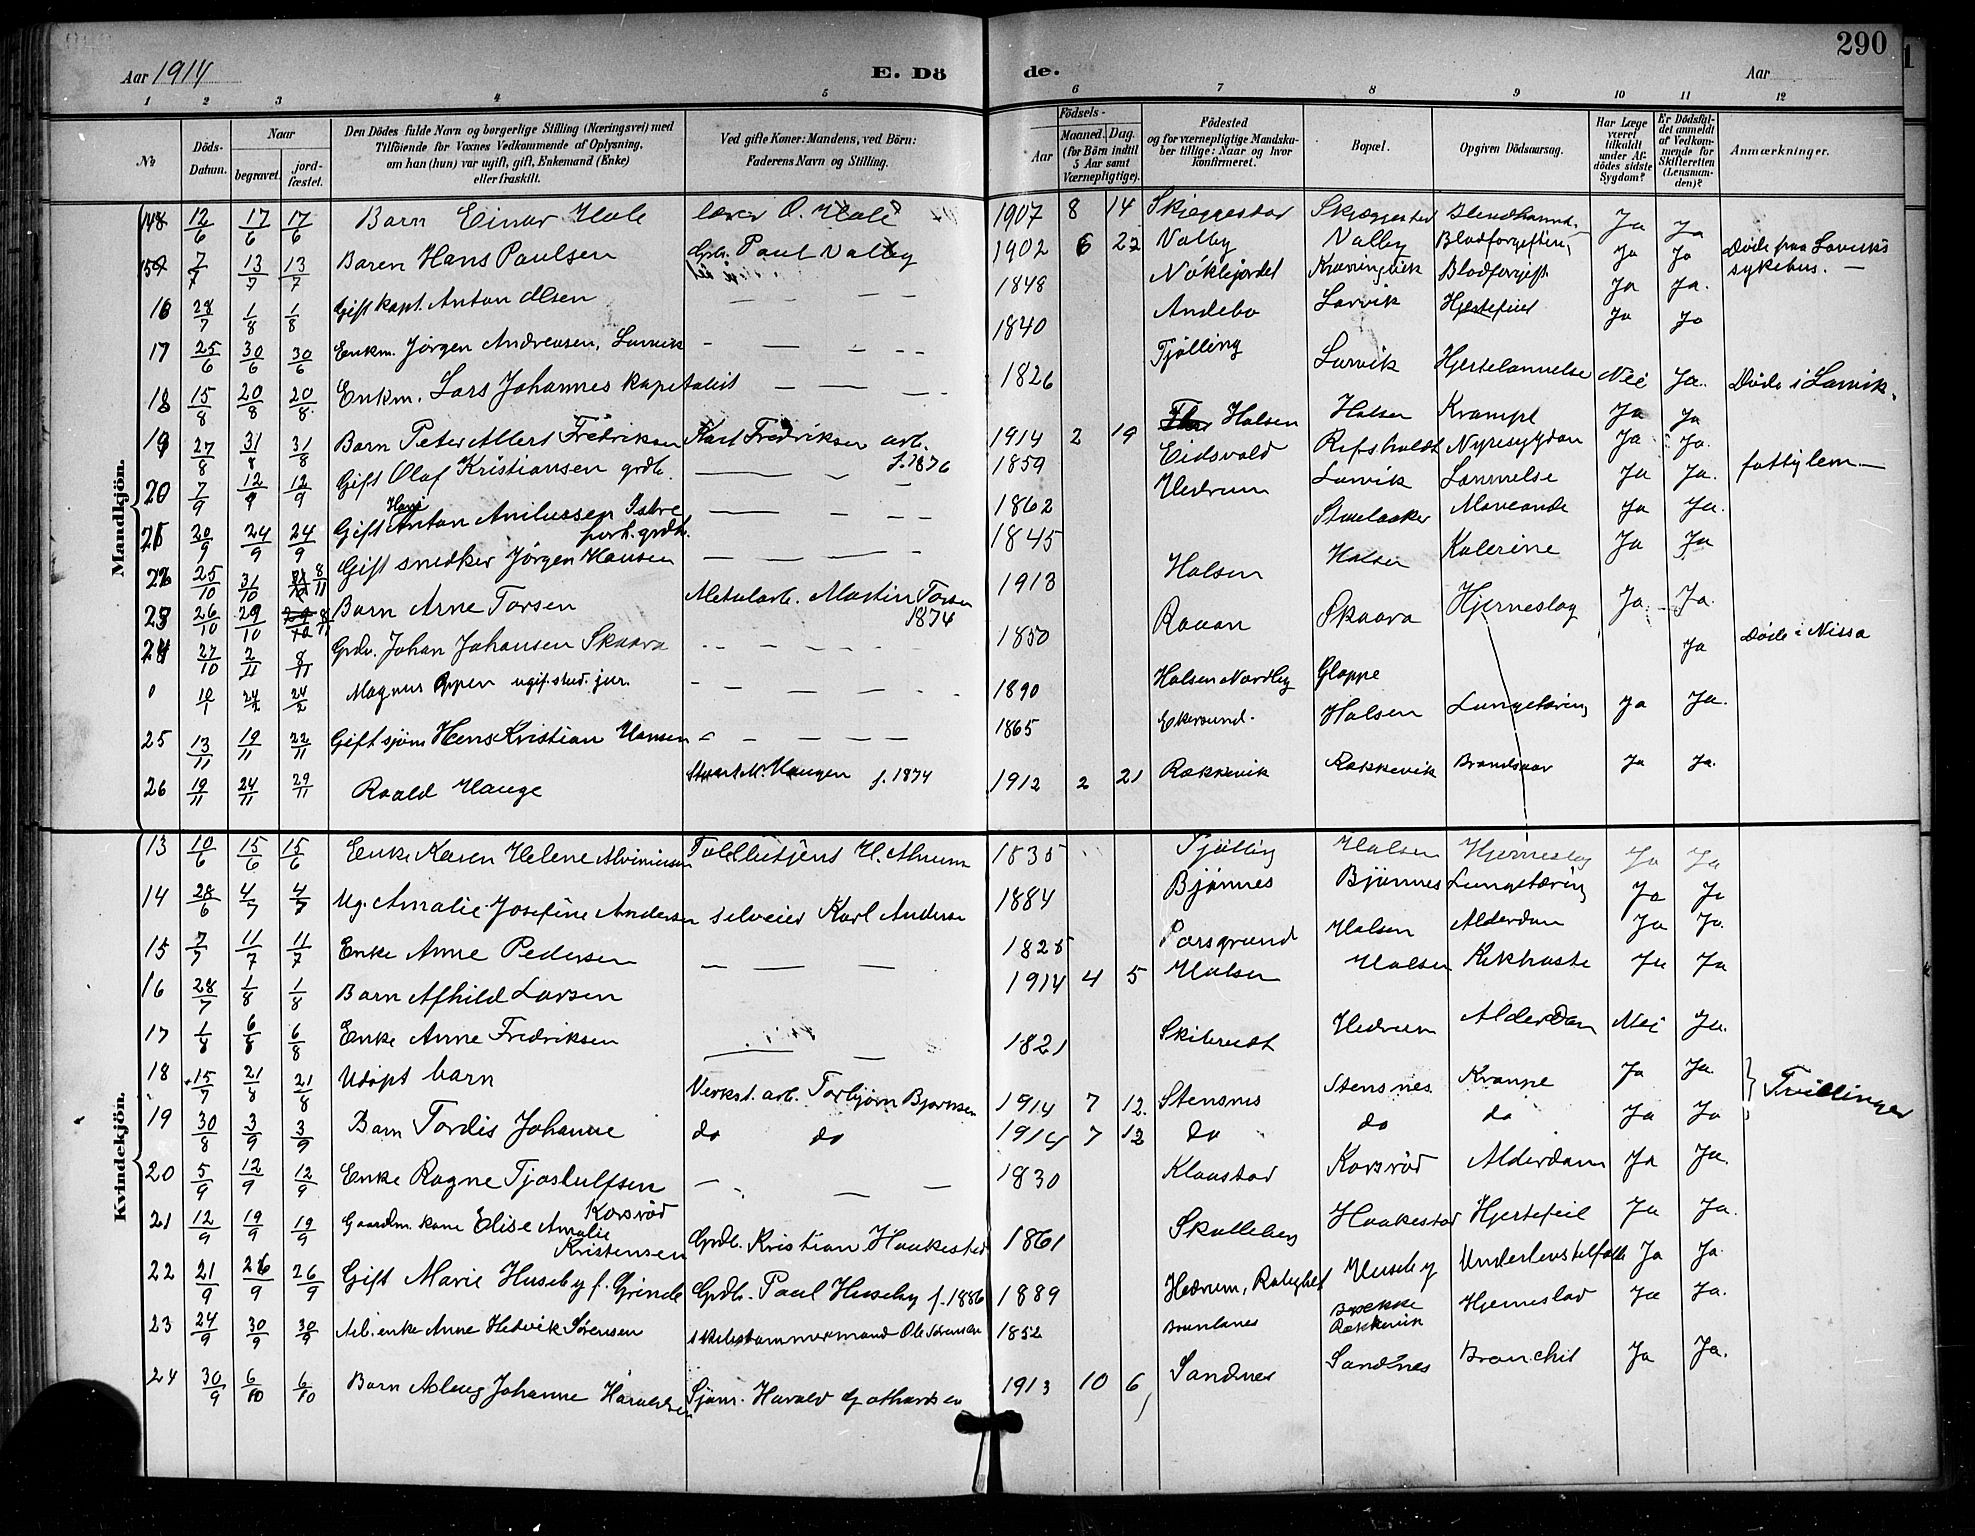 290
Aar 1914 E. Dö de. Aar
1 2 3 4 5 6 7 8 9 10 11 12
No Döds-Datum. Naar begravet. jord-fæstet. Den Dödes fulde Navn og borgerlige Stilling (Næringsvei) med Tilföiende for Voxnes Vedkommende af Oplysning, om han (hun) var ugift, gift, Enkemand (Enke) eller fraskilt. Ved gifte Koner: Mandens, ved Börn: Faderens Navn og Stilling. Födsels- Aar Maaned. Dag. (for Börn indtil 5 Aar samt Værnepligtige). Födested og for værnepligtige Mandskaber tillige: Naar og hvor konfirmeret. Bopæl. Opgiven Dödsaarsag. Har Læge været tilkaldt under Afdödes sidste Sygdom? Er Dödsfaldet anmeldt af Vedkommende for Skifteretten (Lensmanden)? Anmærkninger.
Mandkjön.
14 12/6 17/6 17/6 Barn Einar Hale lærer O. Hale 1907 8 14 Skjeggestad Skjæggestad Ja Ja
15 7/7 13/7 13/7 Hans Paulsen Gbr. Paul Valby 1902 6 22 Valby Valby Blodforgiftning Ja Ja Døde paa Larviks sykehus. —
16 28/7 1/8 1/8 Gift kapt. Anton Olsen — — — — 1848 Nøklejordet Blodforgift. Ja Ja.
17 25/6 30/6 30/6 Enkm. Jørgen Andreasen, Larvik - — — — 1840 Andebo Larvik Hjertefeil Ja Ja
18 15/8 20/8 20/8 Enkm. Lars Johannes kapt — — — 1826 Tjølling Larvik Hjertelammelse Nei Ja. Døde i Larvik.
19 27/8 31/8 31/8 Barn Peter Albert Fredriksen Karl Fredriksen arb. f. 1876 1914 2 19 Halsen Halsen Krampe Ja Ja
20 7/9 12/9 12/9 Gift Olaf Kristiansen grdb. — — — 1859 Eidsvold Refsholdt Nyresygdom Ja Ja. fattiglem —
21 20/9 24/9 24/9 Gift Hans Anton Istre grdb. — — — 1862 Hedrum Larvik Lammelse Ja Ja.
22 25/10 31/10 8/11 Gift snedker Jørgen Hansen — — — 1845 Ja Ja.
23 26/10 29/10 8/11 Barn Arne Torsen Metalarb. Martin Torsen 1874 1913 Halsen Halsen Ja Ja
24 27/10 2/11 8/11 Grdb. Johan Johansen Skaara - — — — 1850 Raaan Skaara Hjerneslag Ja Ja.
0 10/1 24/2 24/2 Magnus Oppen ugif. stud. jur. - — — — 1890 Halsen Nordby Gloppe Ja Døde i Nissa
25 13/11 19/11 22/11 Gift sjøm Hans Kristian Hansen - — — — 1865 Ekersund. Halsen Lungetæring Ja Ja.
26 19/11 24/11 29/11 Roald Hauge Hauge f. 1874 1912 2 21 Rakkevik Rakkevik Brandsaar Ja Ja.
Kvindekjön.
13 10/6 15/6 15/6 Enke Karen Helene 1835 Tjølling Halsen Hjerneslag Ja Ja
14 28/6 4/7 4/7 Ug. Amalie Josefine Andersen selveier Karl Andersen 1884 Bjønnes Bjønnes Lungetæring Ja Ja
15 7/7 11/7 11/7 Enke Anne Pedersen — — — 1825 Porsgrund Halsen Alderdom Ja Ja.
16 28/7 1/8 1/8 Barn Afhild Larsen 1914 4 5 Halsen Halsen Kikhoste Ja Ja
17 1/8 6/8 6/8 Enke Anne Fredriksen — — 1821 Hedrum Alderdom Nei Ja.
18 15/7 21/8 21/8 Udøpt barn Verkst. arb. Torbjørn Bjørnsen 1914 7 12 Stensnes Stensnes Krampe Ja Ja. Tvillinger
19 30/8 3/9 3/9 Barn Tordis Johanne do do 1914 7 12 do do do Ja Ja
20 5/9 12/9 12/9 Enke Ragne Tjostulfsen Korsrød — — — 1830 Klaastad Korsrød Alderdom Ja Ja.
21 12/9 19/9 19/9 Gaardm. kone Elise Amalie Kristensen Grdb. Kristian Haakestad 1861 Skalleberg Haakestad Hjertefeil Ja Ja.
22 21/9 26/9 26/9 Gift Marie Huseby f. Grinde Grdb. Paul Huseby f. 1886 1889 Hedrum, Huseby Ja Ja.
23 24/9 30/9 30/9 enke Anne Hedvik Sørensen skibstømmermand Ole Sørensen 1852 Brunlanes Brekke Rakkevik Hjerneslag Ja Ja.
24 30/9 6/10 6/10 Barn Aslaug Johanne Haraldsen Sjøm. Harald Gothardsen 1913 10 6 Sandnes Sandnes Bronchit Ja Ja.